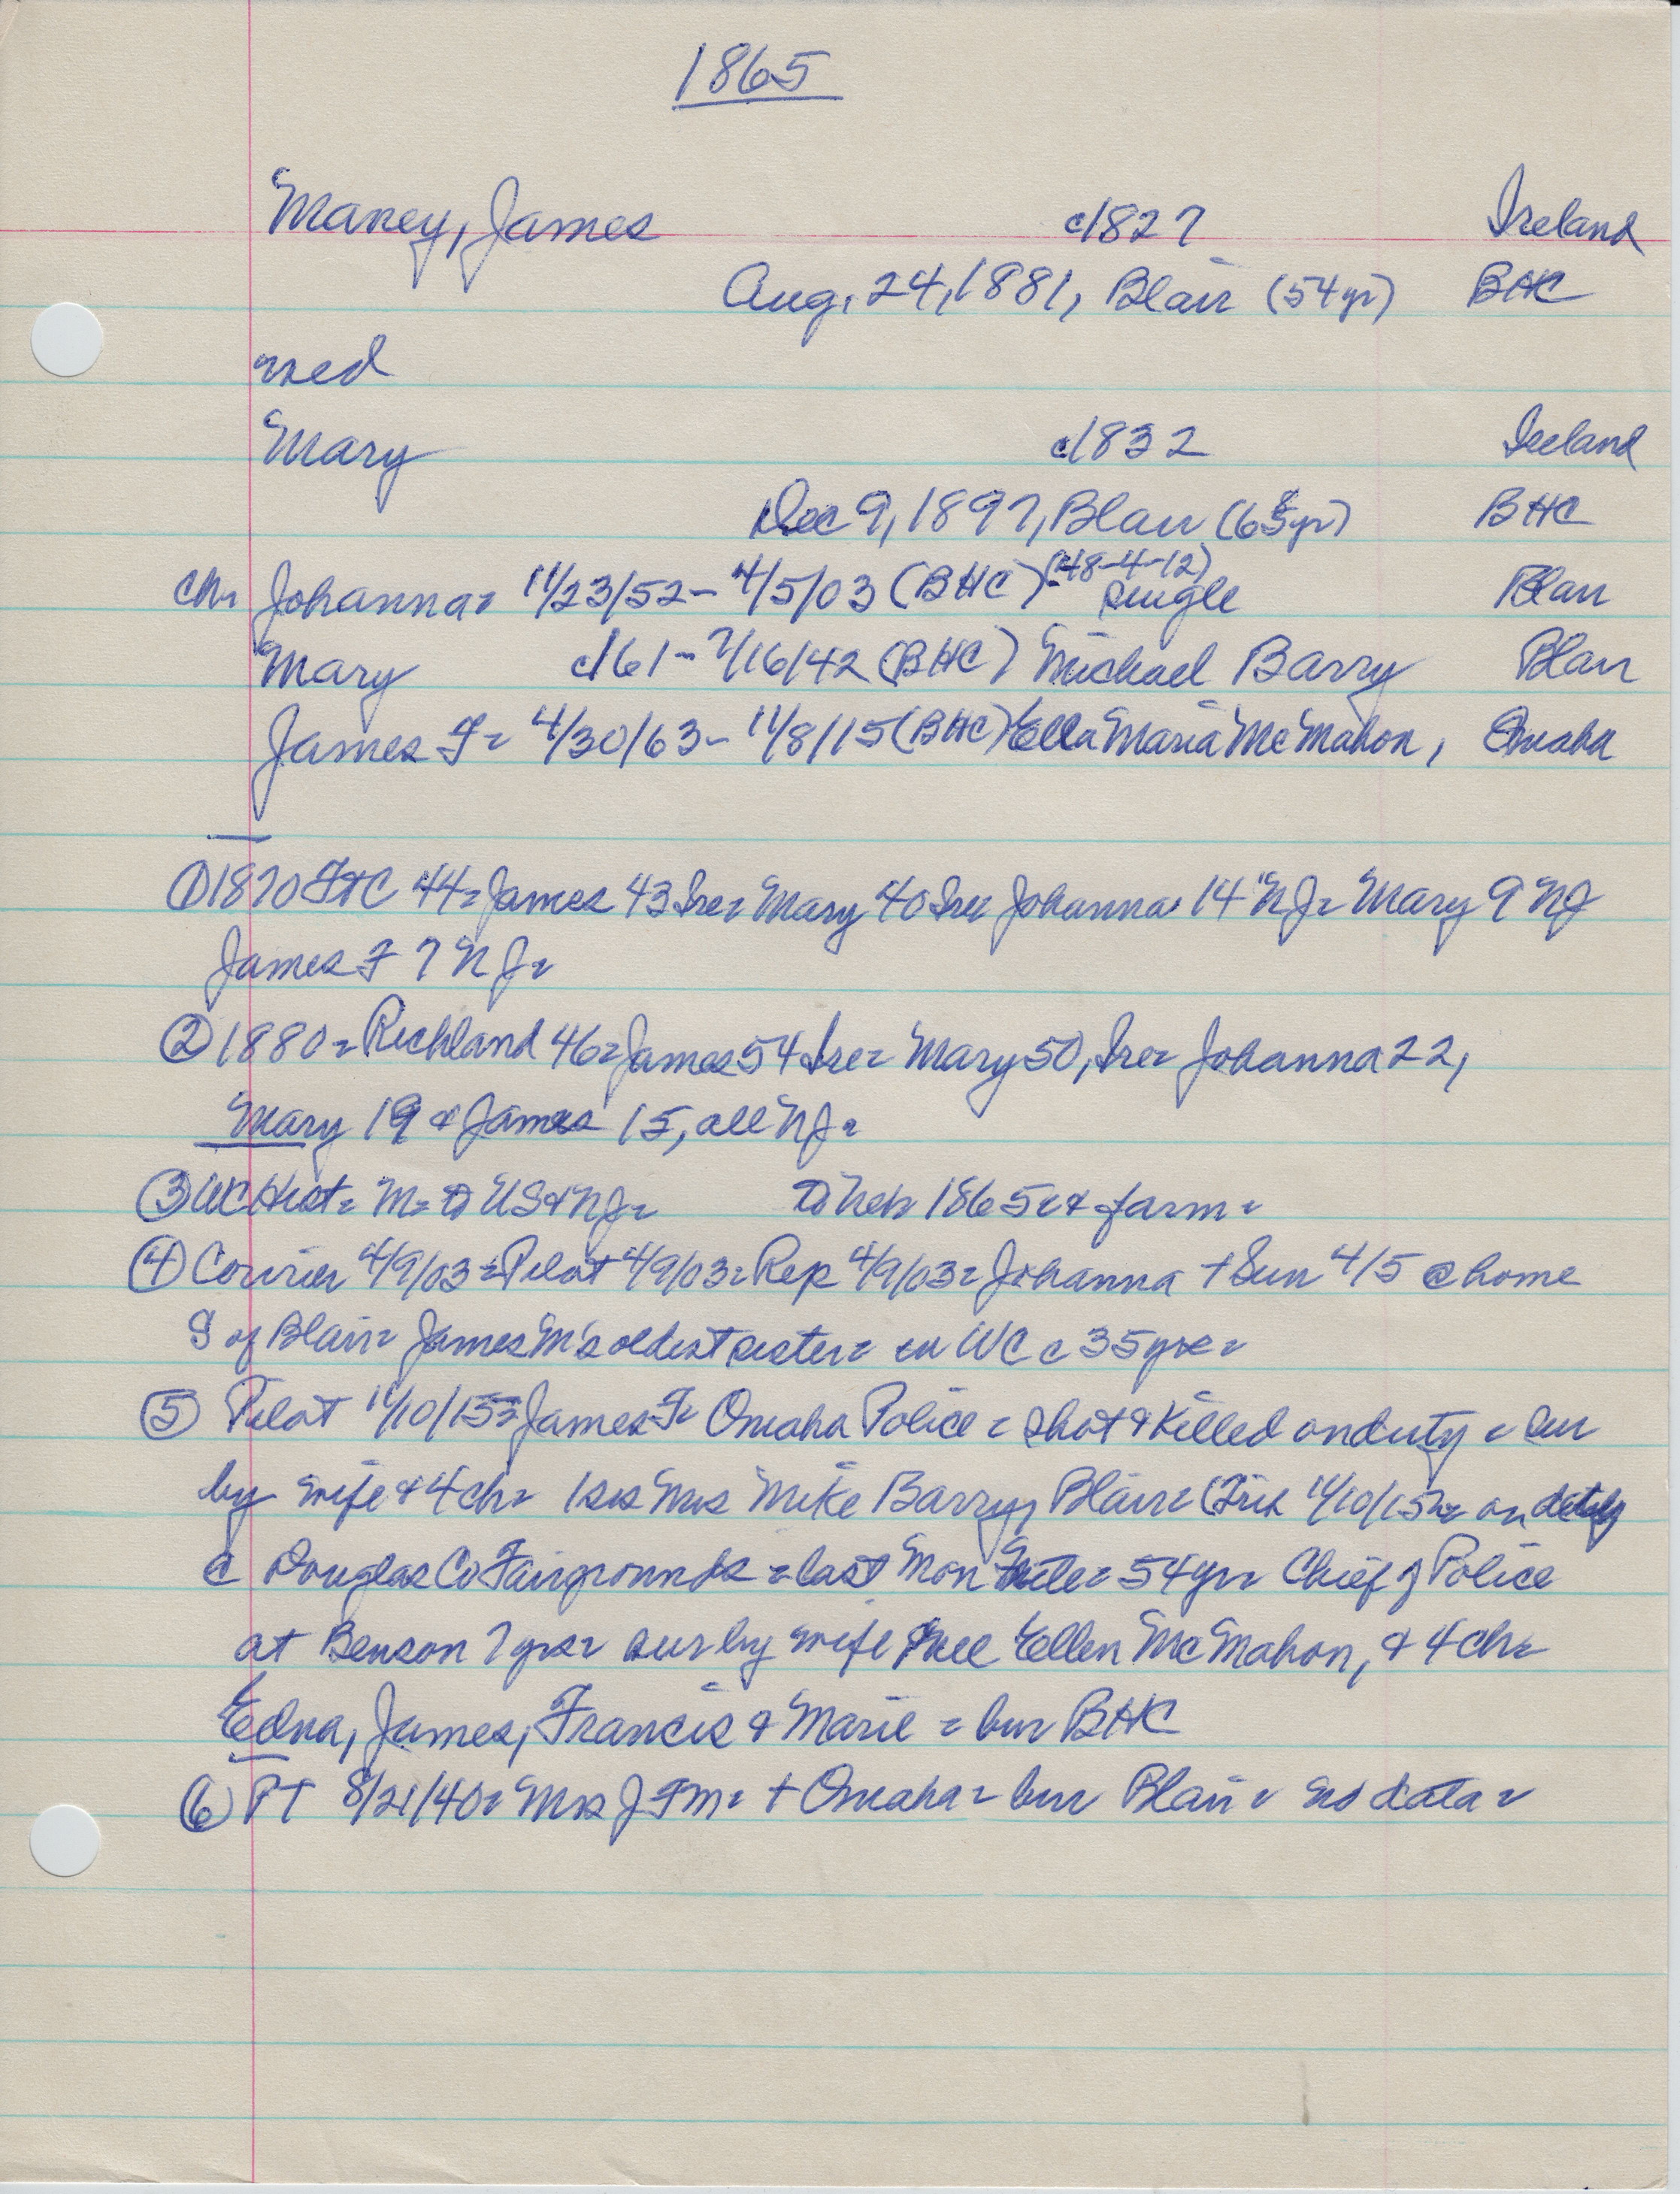 1865
Maney, James c1827 Ireland
Aug. 24, 1881, Blair (54yr) BHC
med
Mary c1832 Ireland
Dec 9, 1897, Blair (65yr) BHC
ch- Johanna- 11/23/52- 4/5/03 (BHC) (48-4-12) single Blair
Mary c/61- 7/16/42 (BHC) Michael Barry Blair
James F- 4/30/63- 11/8/15 (BHC) Ella Maria McMahon, Omaha
① 1870 FtC 44- James 43 Ire- Mary 40 Ire- Johanna- 14 NJ- Mary 9 NJ
James F 7 NJ-
② 1880- Richland 46- James 54 Ire- Mary 50, Ire- Johanna 22,
Mary 19 & James 15, all NJ-
③ WC Hist- M- to US & NJ- to Neb 1865 & farm-
④ Courier 4/9/03- Pilot 4/9/03- Rep 4/9/03- Johanna + Sun 4/5 @ home
S of Blair- James M's oldest sister- in WC c 35yrs-
⑤ Pilot 11/10/15- James F- Omaha Police- shot & killed on duty- sur
by wife & 4 ch- 1 sis Mrs Mike Barry, Blair- (Trib 11/10/15- on duty
@ Douglas Co Fairgrounds- last Mon nite- 54yr- Chief of Police
at Benson 7 yrs- sur by wife nee Ellen McMahon, & 4 ch-
Edna, James, Francis & Marie- bur BHC
⑥ PT 8/21/40- Mrs J F M- + Omaha- bur Blair- no data-